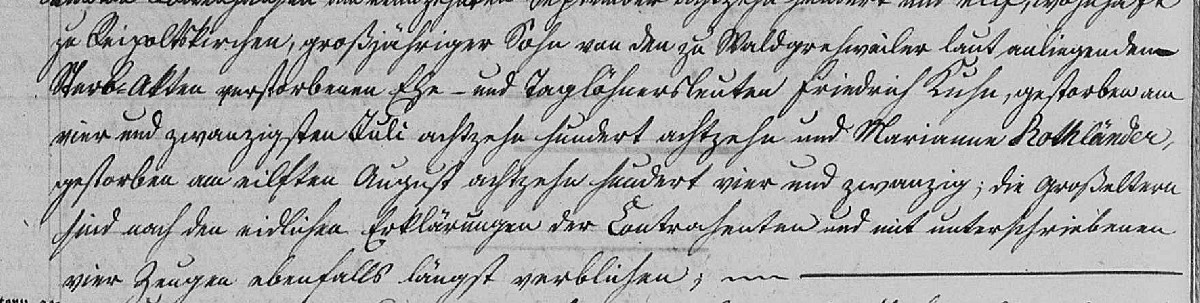 am neunzehnten September achtzehn hundert und elf, wohnhaft
zu Reipoltskirchen, großjähriger Sohn von den zu Waldgrehweiler laut anliegenden
Sterb-Akten verstorbenen Ehe- und Taglöhnersleuten Friedrich Kuhn, gestorben am
vier und zwanzigsten Juli achtzehn hundert achtzehn und Marianne Rothländer,
gestorben am eilften August achtzehn hundert vier und zwanzig; die Großeltern
sind nach den eidlichen Erklärungen der Contrahenten und mit unterschriebenen
vier Zeugen ebenfalls längst verblichen;